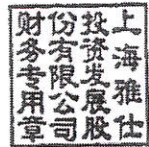 上海雅仕
投资发展股
份有限公司
财务专用章